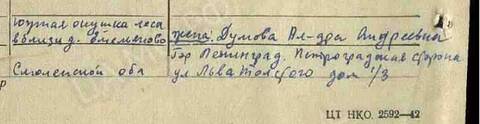 южная опушка леса
вблизи д. Емельяново
Смоленской обл
жена. Думова Ал-дра Андреевна
Гор Ленинград. Петроградская сторона
ул Льва Толстого дом 1/3
ЦТ НКО. 2592—42